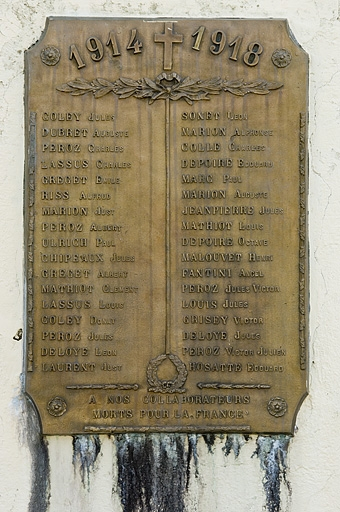 1914 1918
COLEY JULES
DUBRET AUGUSTE
PEROZ CHARLES
LASSUS CHARLES
GREGET EMILE
RISS ALFRED
MARION JUST
PEROZ ALBERT
ULRICH PAUL
CHIPEAUX JULES
GREGET ALBERT
MATHIOT CLEMENT
LASSUS LOUIS
COLEY
PEROZ JULES
DELOYE LEON
LAURENT JUST
SONET LEON
MARION ALPHONSE
COLLE CHARLES
DEPOIRE EDOUARD
MARC PAUL
MARION AUGUSTE
JEANPIERRE JULES
MATHIOT LOUIS
DEPOIRE OCTAVE
MALOUVET HENRI
FANTINI ANGEL
PEROZ JULES VICTOR
LOUIS JULES
GRISEY VICTOR
DELOYE JULES
PEROZ VICTOR JULIEN
ROSATTE EDOUARD
A NOS COLLABORATEURS
MORTS POUR LA FRANCE